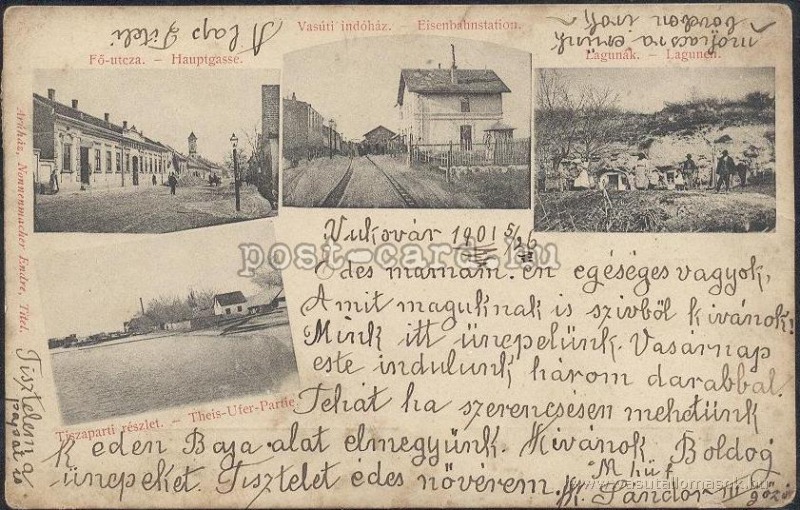 A lap Titeli
Vasúti indóház. - Eisenbahnstation.
Fő-utcza. - Hauptgasse.
Lagunák. - Lagunen.
mohácsra erünk
Vukovár 1901 5/26
post-card.hu
Édes mamám. én egéséges vagyok,
Amit maguknak is szivből kivánok!
Mink itt ünepelünk. Vasárnap
este indulunk három darabbal.
Tehát ha szerencsésen mehetünk
k eden Baja alat elmegyünk. Kivánok Boldog
ünepeket. Tisztelet édes nővérem.
K. Sándor III
Tiszaparti részlet. - Theis-Ufer-Partie.
Áruház, Nonnenmacher Endre, Titel.
Tisztelem a
www.vasutallomasok.hu